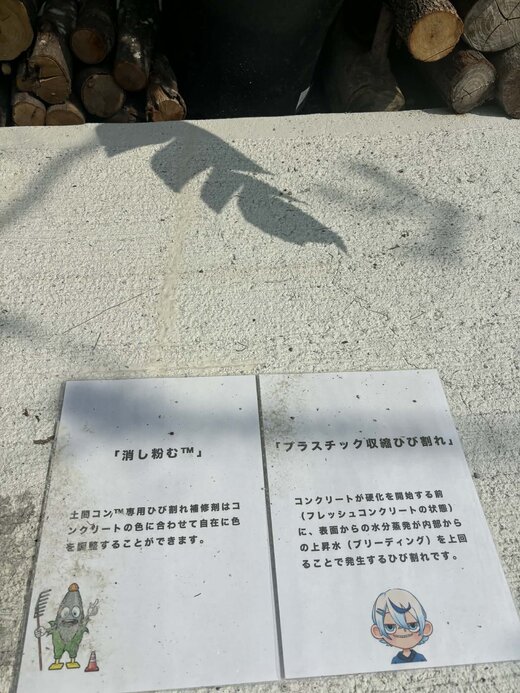 「消し粉む™」
土間コン™専用ひび割れ補修剤はコ
ンクリートの色に合わせて自在に色
を調整することができます。
「プラスチック収縮ひび割れ」
コンクリートが硬化を開始する前
（フレッシュコンクリートの状態）
に、表面からの水分蒸発が内部から
の上昇水（ブリーディング）を上回
ることで発生するひび割れです。